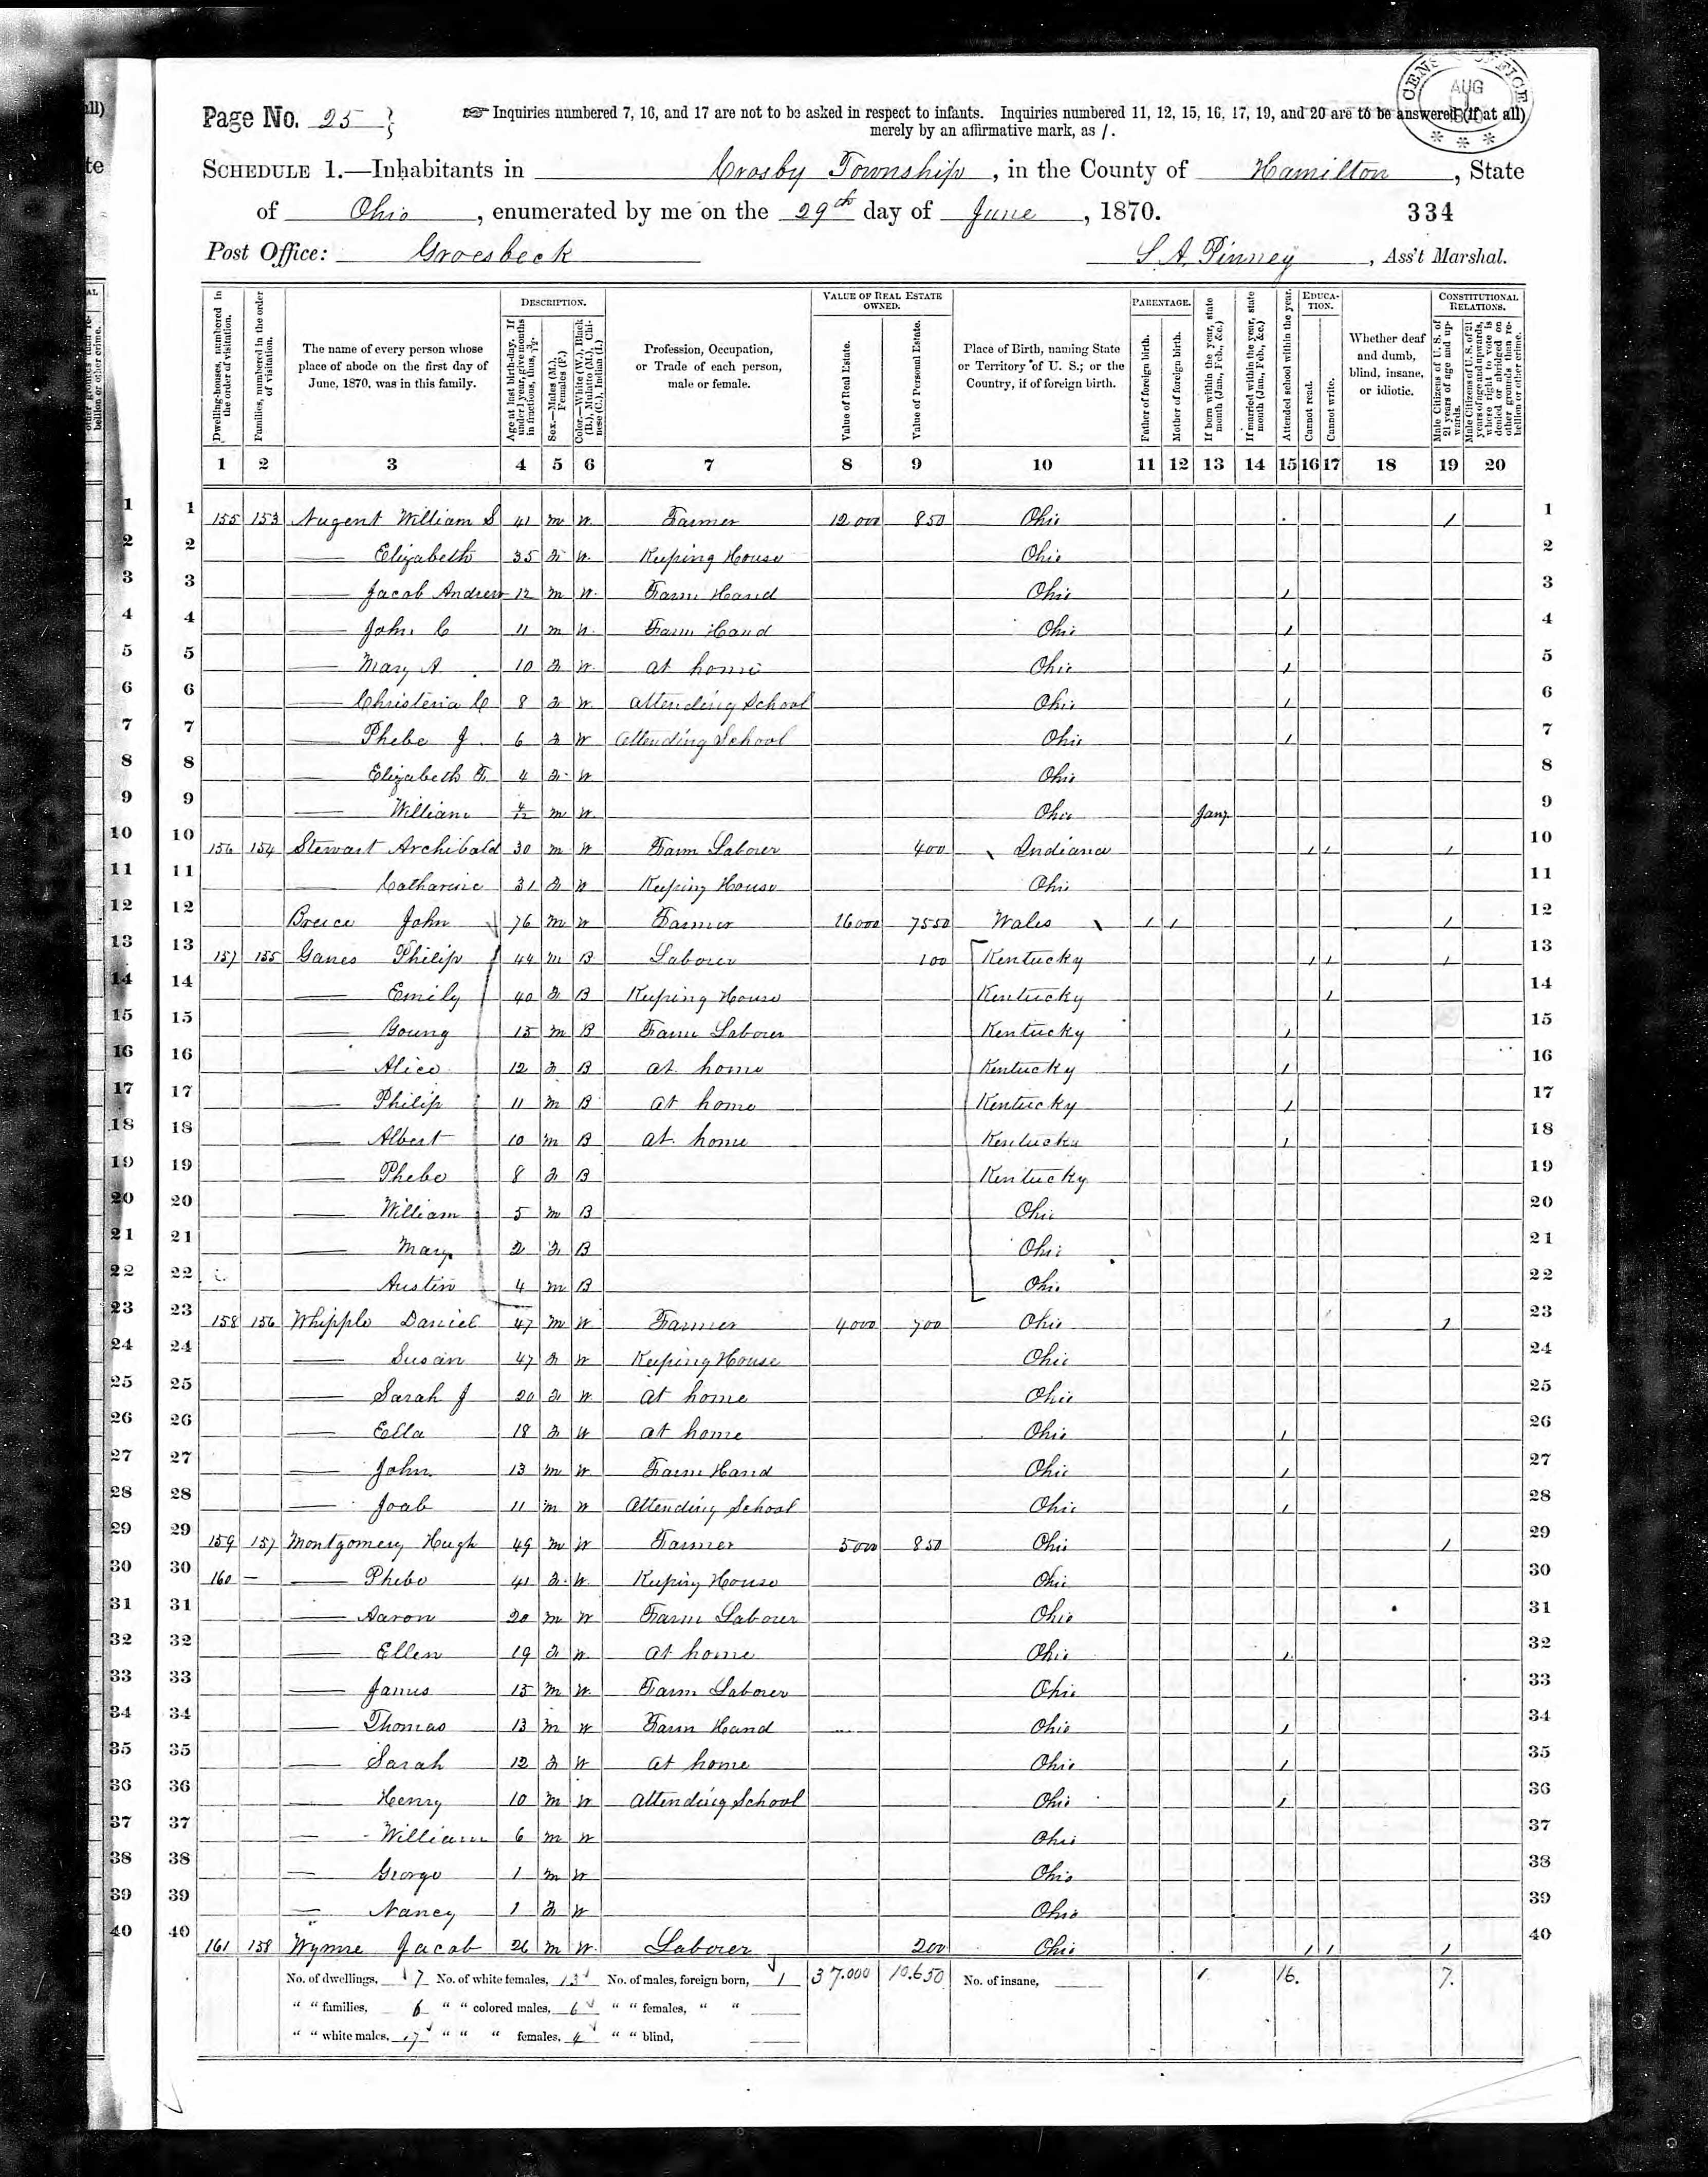 Page No. 25
Inquiries numbered 7, 16, and 17 are not to be asked in respect to infants. Inquiries numbered 11, 12, 15, 16, 17, 19, and 20 are to be answered (if at all)
merely by an affirmative mark, as /.
CENSUS OFFICE AUG
SCHEDULE 1.—Inhabitants in Crosby Township, in the County of Hamilton, State
of Ohio, enumerated by me on the 29th day of June, 1870. 334
Post Office: Groesbeck S. A. Pinney, Ass't Marshal.
Dwelling-houses, numbered in the order of visitation.
Families, numbered in the order of visitation.
The name of every person whose place of abode on the first day of June, 1870, was in this family.
DESCRIPTION.
Age at last birth-day. If under 1 year, give months in fractions, thus, 3/12.
Sex.—Males (M.), Females (F.)
Color.—White (W.), Black (B.), Mulatto (M.), Chinese (C.), Indian (I.)
Profession, Occupation, or Trade of each person, male or female.
VALUE OF REAL ESTATE OWNED.
Value of Real Estate.
Value of Personal Estate.
Place of Birth, naming State or Territory of U. S.; or the Country, if of foreign birth.
PARENTAGE.
Father of foreign birth.
Mother of foreign birth.
If born within the year, state month (Jan., Feb., &c.)
If married within the year, state month (Jan., Feb., &c.)
Attended school within the year.
EDUCATION.
Cannot read.
Cannot write.
Whether deaf and dumb, blind, insane, or idiotic.
CONSTITUTIONAL RELATIONS.
Male Citizens of U. S. of 21 years of age and upwards.
Male Citizens of U. S. of 21 years of age and upwards, where right to vote is denied or abridged on other grounds than rebellion or other crime.
1 2 3 4 5 6 7 8 9 10 11 12 13 14 15 16 17 18 19 20
1 155 153 Nugent William S 41 M W Farmer 12000 850 Ohio 1 1
2 — Elizabeth 35 F W Keeping House Ohio 2
3 — Jacob Andrew 12 M W Farm Hand Ohio 1 3
4 — John C 11 M W Farm Hand Ohio 1 4
5 — Mary A 10 F W at home Ohio 1 5
6 — Christena C 8 F W Attending School Ohio 1 6
7 — Phebe J 6 F W Attending School Ohio 1 7
8 — Elizabeth F. 4 F W Ohio 8
9 — William 4/12 M W Ohio Jany. 9
10 156 154 Stewart Archibald 30 M W Farm Laborer 400 Indiana 1 1 1 10
11 — Catharine 31 F W Keeping House Ohio 11
12 John 76 M W Farmer 16000 7550 Wales 1 1 1 12
13 157 155 Ganes Philip 44 M B Laborer 100 Kentucky 1 1 1 13
14 — Emily 40 F B Keeping House Kentucky 1 14
15 — 15 M B Farm Laborer Kentucky 1 15
16 — Alice 12 F B at home Kentucky 1 16
17 — Philip 11 M B at home Kentucky 1 17
18 — Albert 10 M B at home Kentucky 1 18
19 — Phebe 8 F B Kentucky 19
20 — William 5 M B Ohio 20
21 — Mary 2 F B Ohio 21
22 — Austin 4 M B Ohio 22
23 158 156 Whipple Daniel 47 M W Farmer 4000 700 Ohio 1 23
24 — Susan 47 F W Keeping House Ohio 24
25 — Sarah J 20 F W at home Ohio 25
26 — Ella 18 F W at home Ohio 1 26
27 — John 13 M W Farm Hand Ohio 1 27
28 — Joab 11 M W Attending School Ohio 1 28
29 159 157 Montgomery Hugh 49 M W Farmer 5000 850 Ohio 1 29
30 160 — — Phebe 41 F W Keeping House Ohio 30
31 — Aaron 20 M W Farm Laborer Ohio 31
32 — Ellen 19 F W at home Ohio 1 32
33 — James 15 M W Farm Laborer Ohio 33
34 — Thomas 13 M W Farm Hand Ohio 1 34
35 — Sarah 12 F W at home Ohio 1 35
36 — Henry 10 M W Attending School Ohio 1 36
37 — William 6 M W Ohio 37
38 — George 1 M W Ohio 38
39 — Nancy 1 F W Ohio 39
40 161 158 Wynne Jacob 26 M W Laborer 200 Ohio 1 1 1 40
No. of dwellings, 7 No. of white females, 13 No. of males, foreign born, 1 37.000 10.650 No. of insane, 1 16. 7.
" " families, 6 " " colored males, 6 " " females, " "
" " white males, 17 " " " females, 4 " " blind,